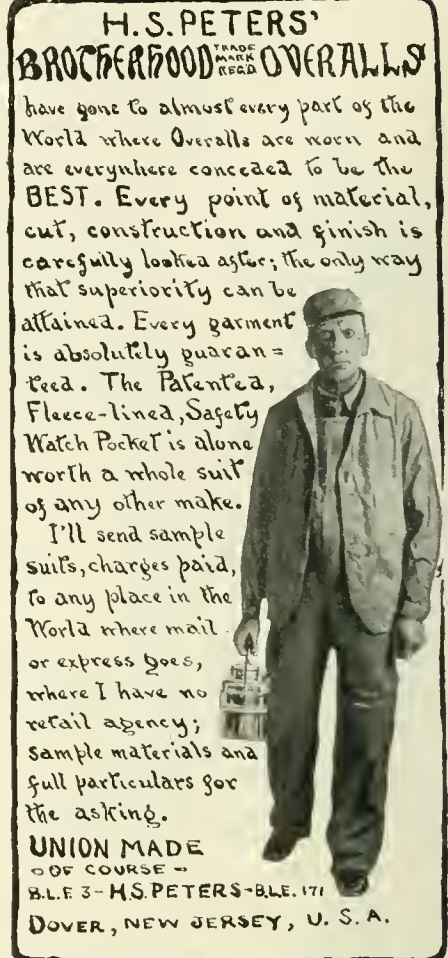 H.S. PETERS'
BROTHERHOOD TRADE MARK REG'D OVERALLS
have gone to almost every part of the
World where Overalls are worn and
are everywhere conceded to be the
BEST. Every point of material,
cut, construction and finish is
carefully looked after; the only way
that superiority can be
attained. Every garment
is absolutely guaran=
teed. The Patented,
Fleece-lined, Safety
Watch Pocket is alone
worth a whole suit
of any other make.
I'll send sample
suits, charges paid,
to any place in the
World where mail
or express goes,
where I have no
retail agency;
sample materials and
full particulars for
the asking.
UNION MADE
OF COURSE -
B.L.F. 3 - H.S. PETERS - B.L.E. 171
DOVER, NEW JERSEY, U. S. A.